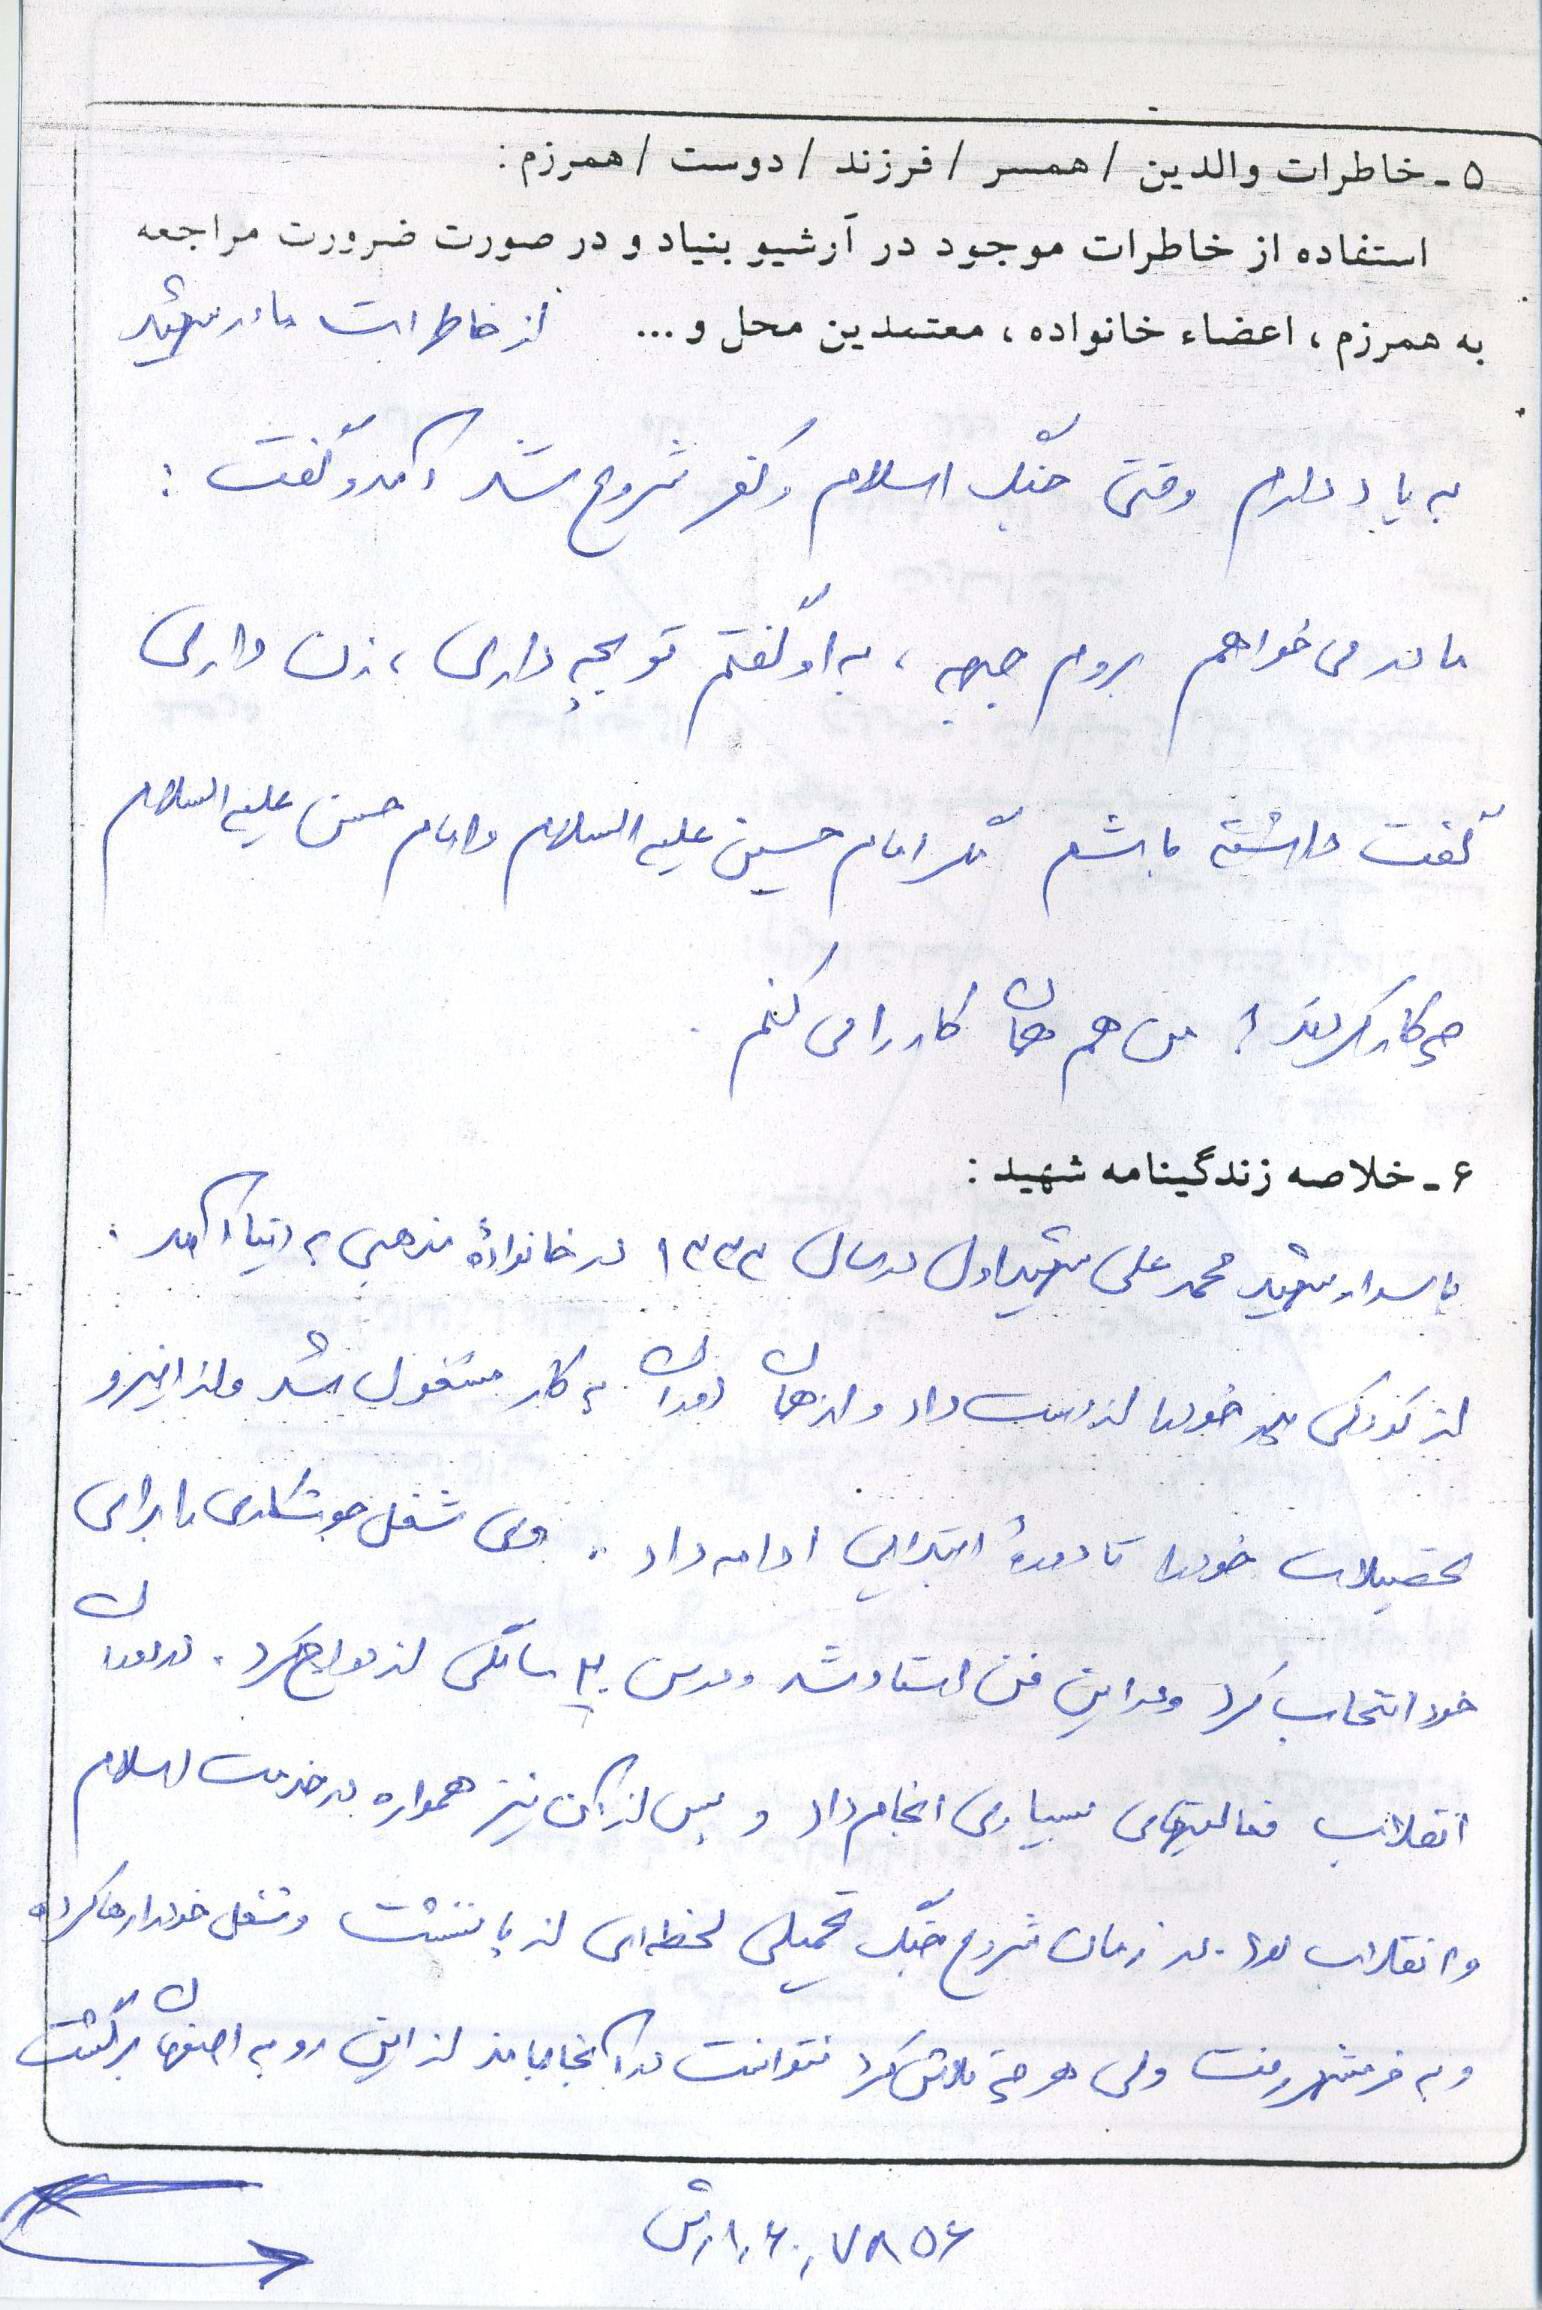 ۵ - خاطرات والدین / همسر / فرزند / دوست / همرزم :
استفاده از خاطرات موجود در آرشیو بنیاد و در صورت ضرورت مراجعه
به همرزم ، اعضاء خانواده ، معتمدین محل و ... از خاطرات مادر شهید
به یاد دارم وقتی جنگ اسلام و کفر شروع شد آمد و گفت :
مادر می خواهم بروم جبهه ، به او گفتم تو بچه داری ، زن داری
گفت داشته باشم مگر امام حسین علیه السلام و امام حسن علیه السلام
چه کار کردند ؟ من هم همان کار را می کنم .
۶ - خلاصه زندگینامه شهید :
پاسدار شهید محمد علی شهیداول در سال ۱۳۳۳ در خانوادهٔ مذهبی به دنیا آمد .
از کودکی پدر خود را از دست داد و از همان دوران به کار مشغول شد و از اینرو
تحصیلات خود را تا دورهٔ ابتدایی ادامه داد . وی شغل جوشکاری را برای
خود انتخاب کرد و در این فن استاد شد و در سن ۲۰ سالگی ازدواج کرد . در دوران
انقلاب فعالیتهای بسیاری انجام داد و پس از آن نیز همواره در خدمت اسلام
و انقلاب بود . در زمان شروع جنگ تحمیلی لحظه ای از پا ننشست و شغل خود را رها کرده
و به خرمشهر رفت ولی هر چه تلاش کرد نتوانست در آنجا بماند از این رو به اصفهان برگشت